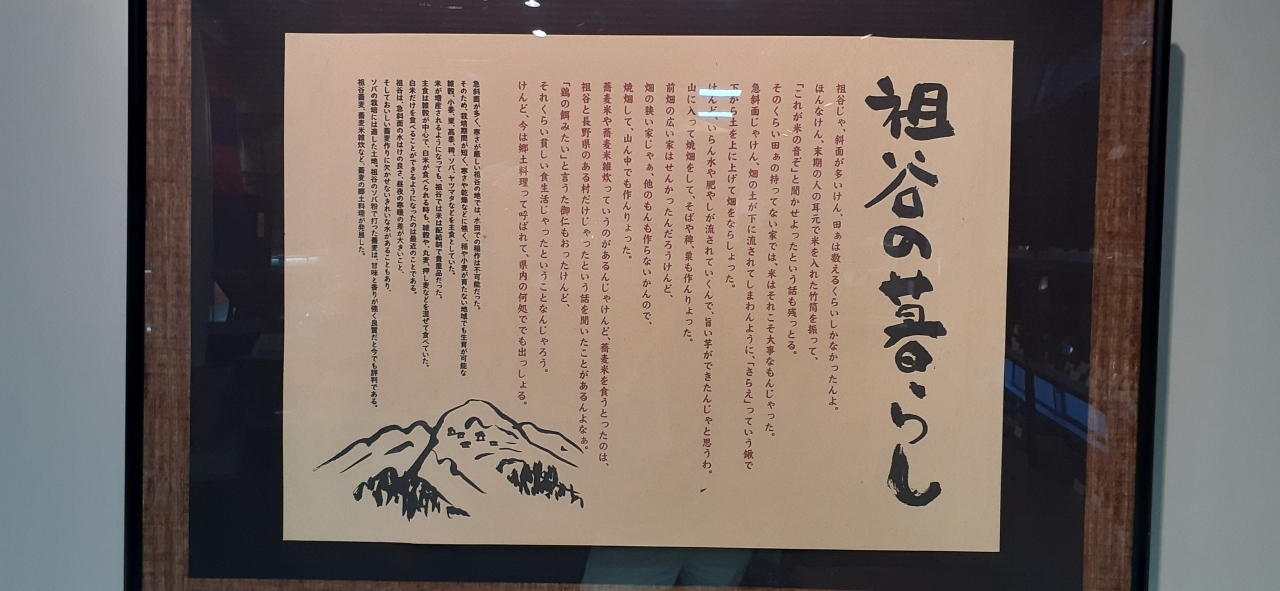 祖谷の暮らし
祖谷じゃ、斜面が多いけん、田ぁは数えるくらいしかなかったんよ。
ほんなけん、末期の人の耳元で米を入れた竹筒を振って、
「これが米の音ぞ」と聞かせよったという話も残っとる。
そのくらい田ぁの持ってない家では、米はそれこそ大事なもんじゃった。
急斜面じゃけん、畑の土が下に流されてしまわんように、「さらえ」っていう鍬で
下から土を上に上げて畑をならしょった。
けんど、いらん水や肥やしが流されていくんで、旨い芋ができたんじゃと思うわ。
山に入って焼畑をして、そばや稗、粟も作んりょった。
前畑の広い家はせんかったんだろうけんど、
畑の狭い家じゃぁ、他のもんも作らないかんので、
焼畑して、山ん中でも作んりょった。
蕎麦米や蕎麦米雑炊っていうのがあるんじゃけんど、蕎麦米を食うとったのは、
祖谷と長野県のある村だけじゃったという話を聞いたことがあるんよなぁ。
「鶏の餌みたい」と言うた御仁もおったけんど、
それくらい貧しい食生活じゃったということなんじゃろう。
けんど、今は郷土料理って呼ばれて、県内の何処ででも出っしょる。
急斜面が多く、寒さが厳しい祖谷の地では、水田での稲作は不可能だった。
そのため、栽培期間が短く、寒さや乾燥などに強く、稲や小麦が育たない地域でも生育が可能な
雑穀、小麦、粟、高黍、稗、ソバ、ヤツマタなどを主食としていた。
米が増産されるようになっても、祖谷では米は配給制で貴重品だった。
主食は雑穀が中心で、白米が食べられる時も、雑穀や、丸麦、押し麦などを混ぜて食べていた。
白米だけを食べることができるようになったのは最近のことである。
祖谷は、急斜面の水はけの良さ、昼夜の寒暖の差が大きいこと、
そしておいしい蕎麦作りに欠かせないきれいな水があることもあり、
ソバの栽培には適した土地。祖谷のソバ粉で打った蕎麦は、甘味と香りが強く良質だと今でも評判である。
祖谷蕎麦、蕎麦米雑炊など、蕎麦の郷土料理が発展した。